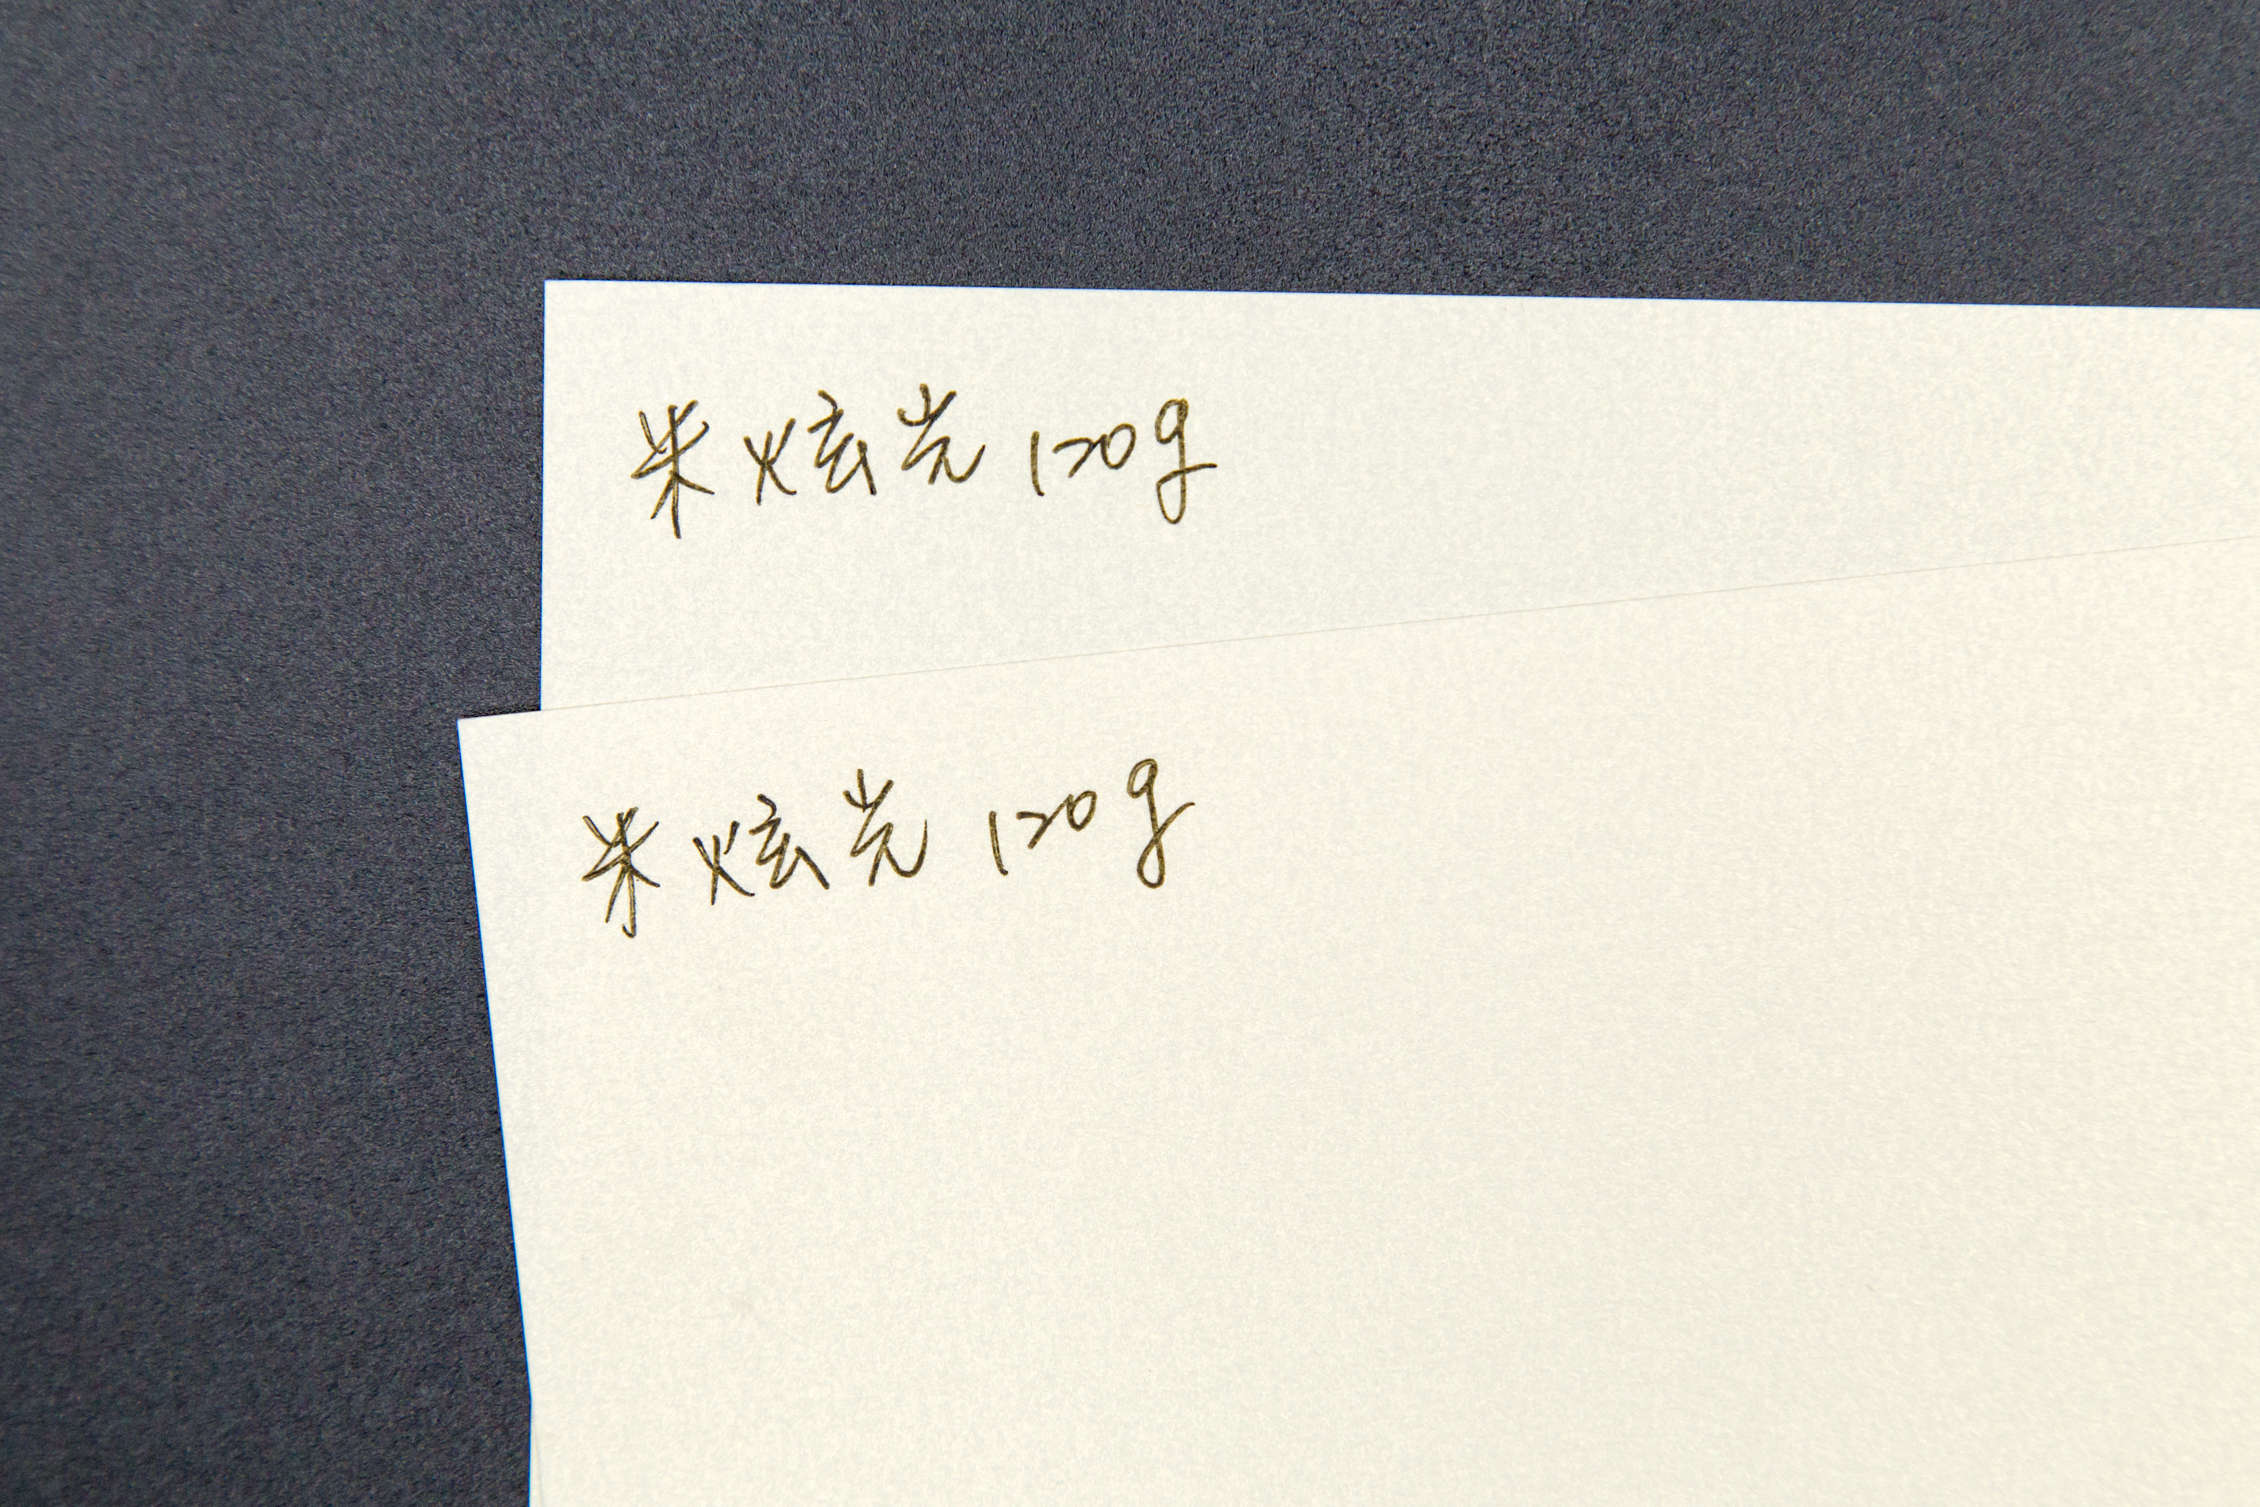 米炫光 120g
米炫光 120g